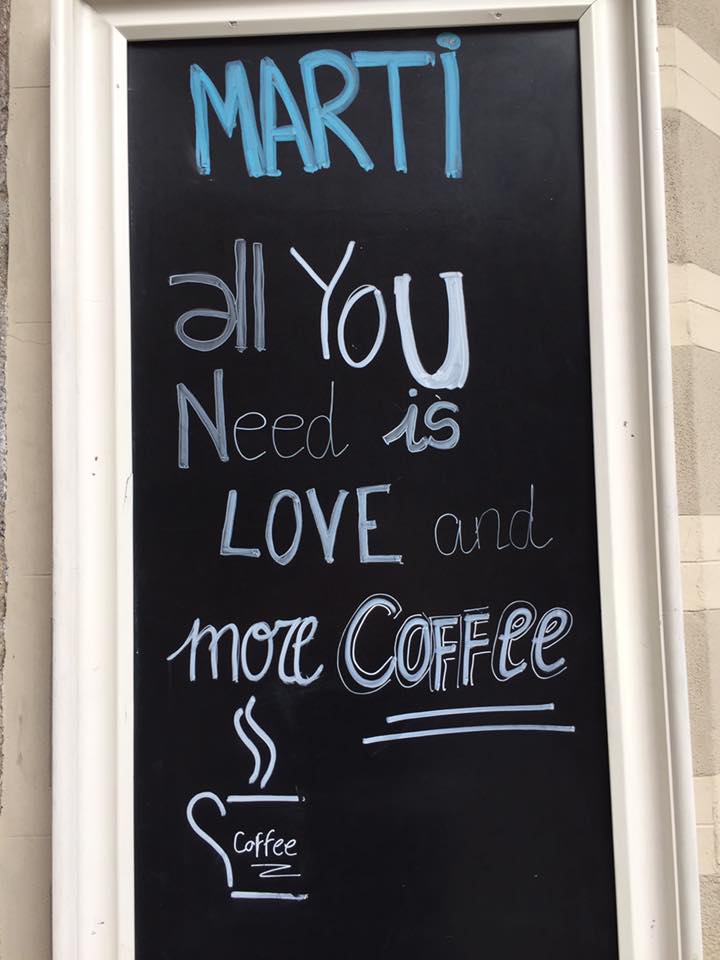 MARTi
all YOU
Need is
LOVE and
more COFFee
Coffee